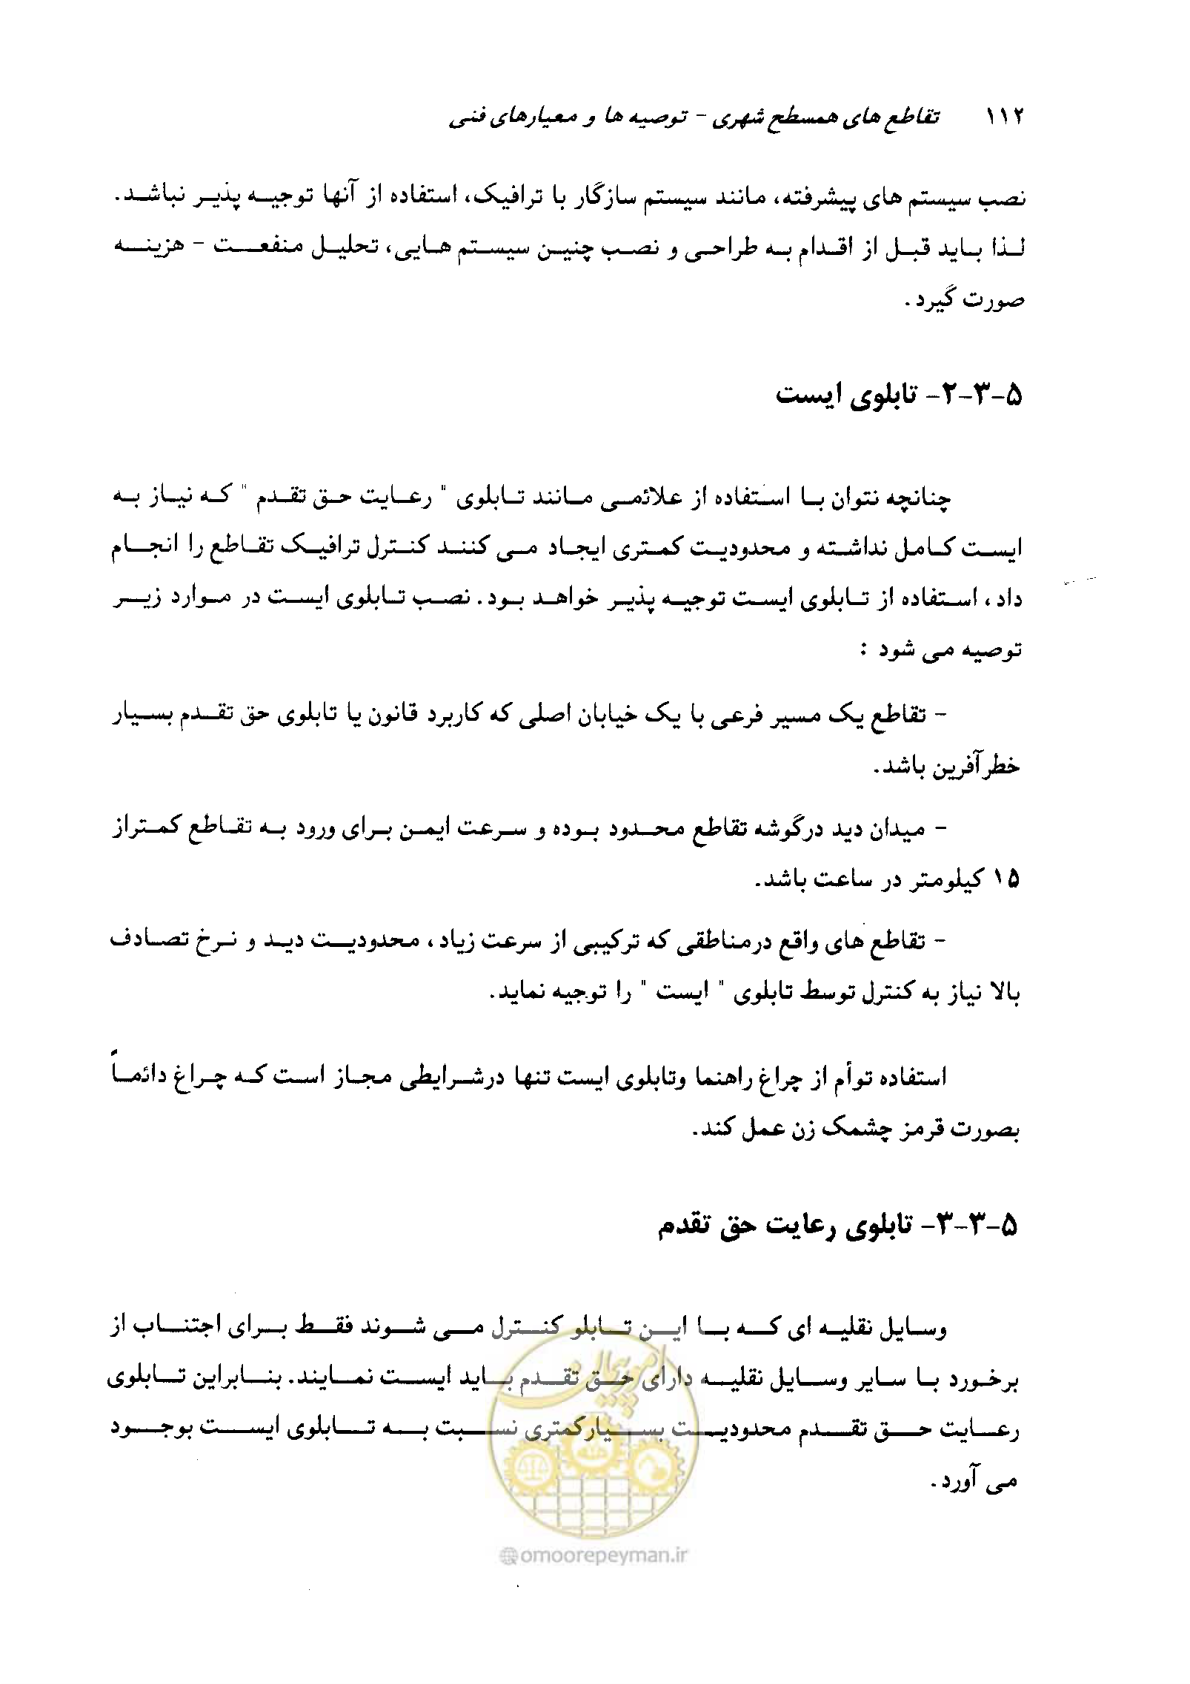 ۱۱۲ تقاطع های همسطح شهری - توصیه ها و معیارهای فنی
نصب سیستم های پیشرفته، مانند سیستم سازگار با ترافیک، استفاده از آنها توجیه پذیر نباشد.
لذا باید قبل از اقدام به طراحی و نصب چنین سیستم هایی، تحلیل منفعت - هزینه
صورت گیرد.
۵-۳-۲- تابلوی ایست
چنانچه نتوان با استفاده از علائمی مانند تابلوی " رعایت حق تقدم " که نیاز به
ایست کامل نداشته و محدودیت کمتری ایجاد می کنند کنترل ترافیک تقاطع را انجام
داد، استفاده از تابلوی ایست توجیه پذیر خواهد بود. نصب تابلوی ایست در موارد زیر
توصیه می شود :
- تقاطع یک مسیر فرعی با یک خیابان اصلی که کاربرد قانون یا تابلوی حق تقدم بسیار
خطرآفرین باشد.
- میدان دید درگوشه تقاطع محدود بوده و سرعت ایمن برای ورود به تقاطع کمتراز
۱۵ کیلومتر در ساعت باشد.
- تقاطع های واقع درمناطقی که ترکیبی از سرعت زیاد، محدودیت دید و نرخ تصادف
بالا نیاز به کنترل توسط تابلوی " ایست " را توجیه نماید.
استفاده توأم از چراغ راهنما وتابلوی ایست تنها درشرایطی مجاز است که چراغ دائماً
بصورت قرمز چشمک زن عمل کند.
۵-۳-۳- تابلوی رعایت حق تقدم
وسایل نقلیه ای که با این تابلو کنترل می شوند فقط برای اجتناب از
برخورد با سایر وسایل نقلیه دارای حق تقدم باید ایست نمایند. بنابراین تابلوی
رعایت حق تقدم محدودیت بسیارکمتری نسبت به تابلوی ایست بوجود
می آورد.
امور پیمان
@omoorepeyman.ir